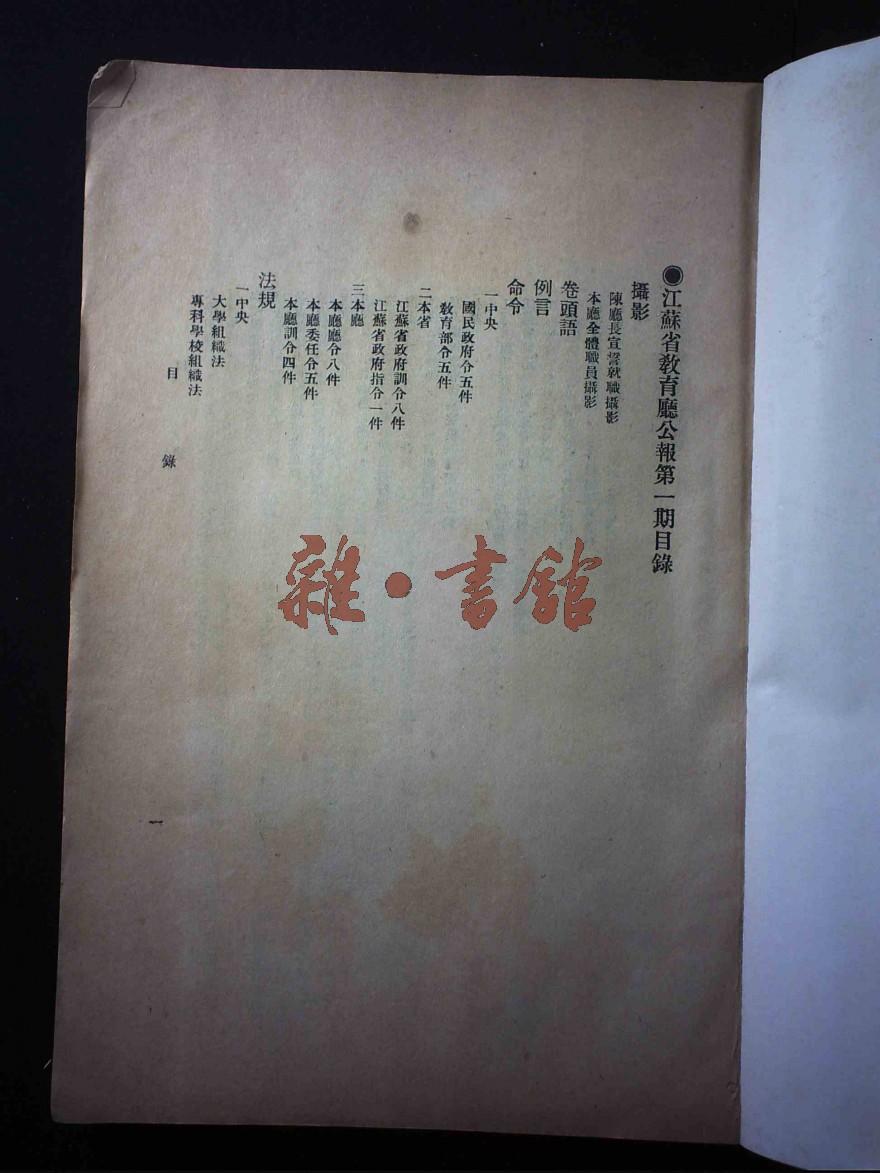 ●江蘇省教育廳公報第一期目錄
攝影
陳廳長宣誓就職攝影
本廳全體職員攝影
卷頭語
例言
命令
一中央
國民政府令五件
教育部令五件
二本省
江蘇省政府訓令八件
江蘇省政府指令一件
三本廳
本廳廳令八件
本廳委任令五件
本廳訓令四件
法規
一中央
大學組織法
專科學校組織法
目錄
一
雜·書館